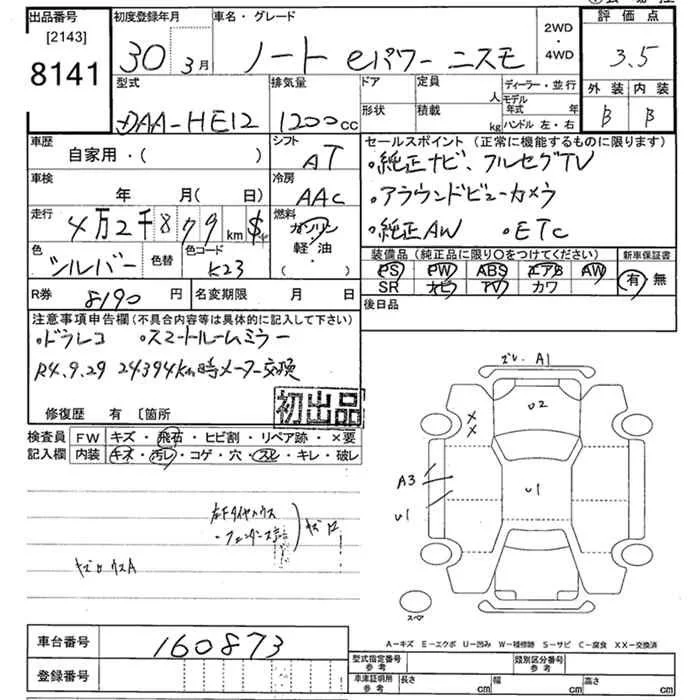 出品番号 初度登録年月 車名・グレード 2WD・4WD 評価点
[2143]
8141 30 3月 ノート eパワー ニスモ 3.5
型式 排気量 ドア 定員 人 ディーラー・並行 外装 内装
形状 積載 kg モデル年式 年 ハンドル 左・右
DAA-HE12 1200cc B B
車歴 シフト セールスポイント(正常に機能するものに限ります)
自家用・( ) AT ・純正ナビ、フルセグTV
車検 冷房 ・アラウンドビューカメラ
年 月( 日) AAC ・純正AW ・ETC
走行 4万2千879km $ 燃料 ガソリン・軽油・( )
色 シルバー 色替 色コード K23
装備品(純正品に限り〇をつけてください) 新車保証書
PS PW ABS エアB AW 有・無
SR ナビ TV カワ
R券 8190円 名変期限 月 日 後日品
注意事項申告欄(不具合内容等は具体的に記入して下さい)
・ドラレコ ・スマートルームミラー
R4.9.29 24394km時メーター交換
初出品
修復歴 有 〔箇所
検査員 FW キズ・飛石・ヒビ割・リペア跡・×要
記入欄 内装 キズ・汚レ・コゲ・穴・スレ・キレ・破レ
ズレ A1
U2
XX
A3
U1
U1
左Fタイヤハウス
・フェンダー
スペア
A-キズ E-エクボ U-凹み W-補修跡 S-サビ C-腐食 XX-交換済
車台番号 160873
登録番号
型式指定番号 参考 類別区分番号 参考
車庫証明用 参考 長さ cm 幅 cm 高さ cm